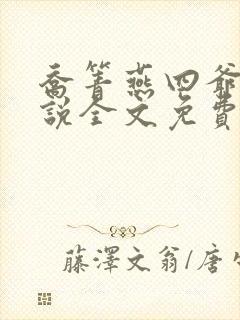 喬箐燕四爺
說全文免費
藤澤文翁/唐